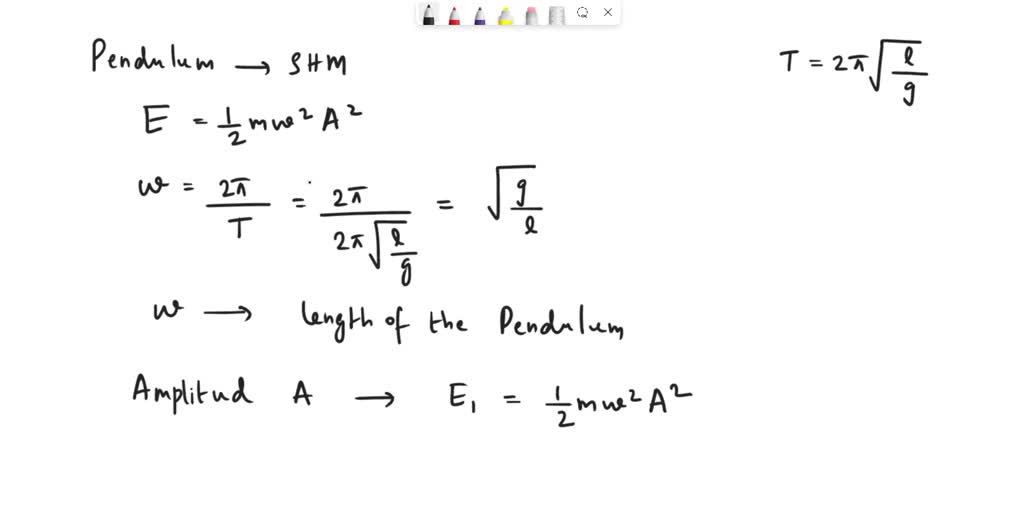 Pendulum → SHM
T = 2π√(l/g)
E = 1/2 mω² A²
ω = 2π/T = 2π/(2π√(l/g)) = √(g/l)
ω → length of the Pendulum
Amplitud A → E₁ = 1/2 mω² A²